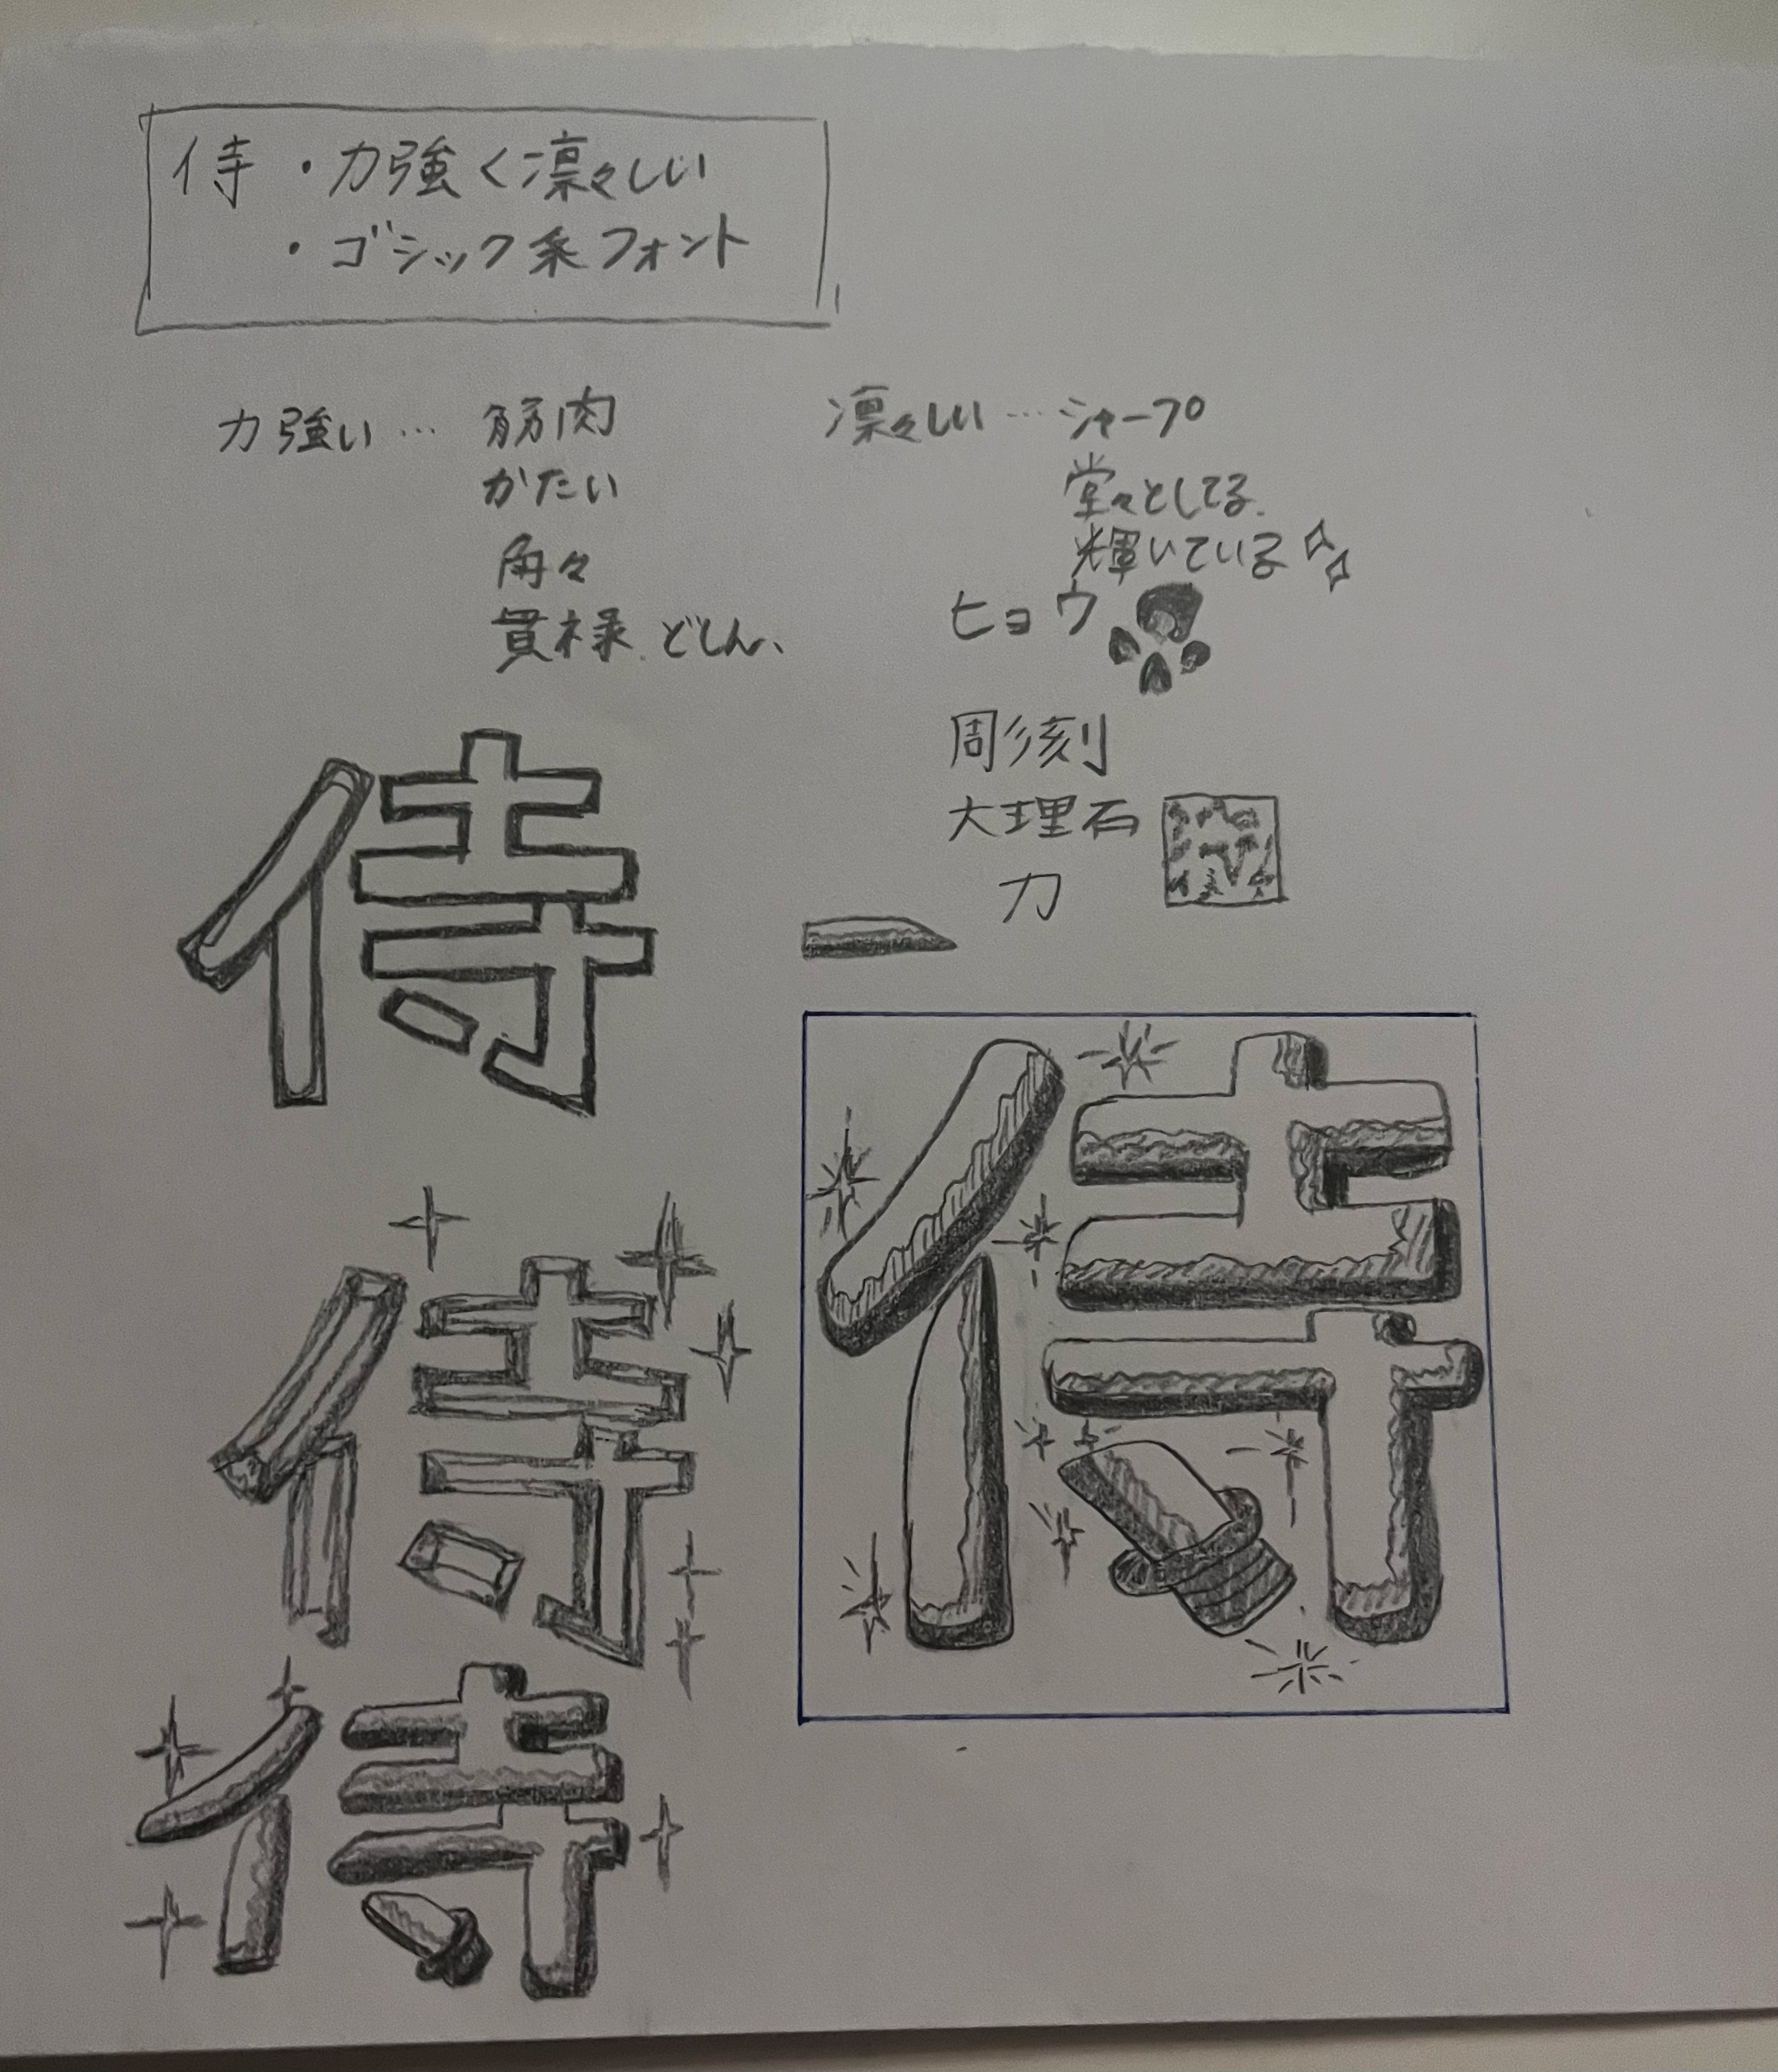 侍 ・力強く凛々しい
・ゴシック系フォント
力強い… 筋肉
かたい
角々
貫禄.どしん、
凛々しい…シャープ
堂々としてる.
輝いている
ヒョウ
彫刻
大理石
刀
侍
侍
侍
侍